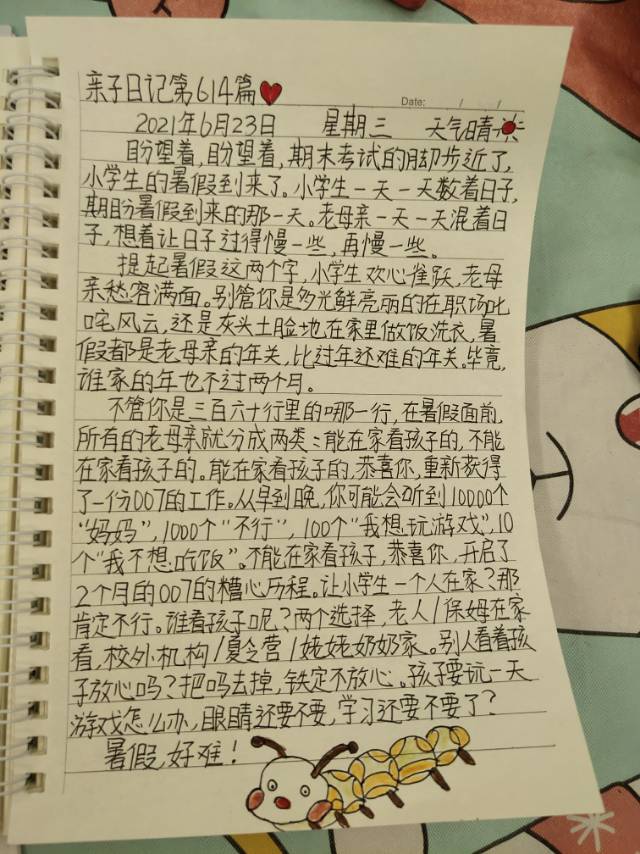 亲子日记第614篇
Date: / /
2021年6月23日 星期三 天气晴
盼望着,盼望着,期末考试的脚步近了,
小学生的暑假到来了。小学生一天一天数着日子,
期盼暑假到来的那一天。老母亲一天一天混着日
子,想着让日子过得慢一些,再慢一些。
提起暑假这两个字,小学生欢心雀跃,老母
亲愁容满面。别管你是多光鲜亮丽的在职场叱
咤风云,还是灰头土脸地在家里做饭洗衣,暑
假都是老母亲的年关,比过年还难的年关。毕竟,
谁家的年也不过两个月。
不管你是三百六十行里的哪一行,在暑假面前,
所有的老母亲就分成两类:能在家看孩子的,不能
在家看孩子的。能在家看孩子的,恭喜你,重新获得
了一份007的工作。从早到晚,你可能会听到10000个
“妈妈”,1000个“不行”,100个“我想玩游戏”,10
个“我不想吃饭”。不能在家看孩子,恭喜你,开启了
2个月的007的糟心历程。让小学生一个人在家?那
肯定不行。谁看孩子呢?两个选择,老人/保姆在家
看,校外机构/夏令营/姥姥奶奶家。别人看着孩
子放心吗?把吗去掉,铁定不放心。孩子要玩一天
游戏怎么办,眼睛还要不要,学习还要不要了?
暑假,好难!